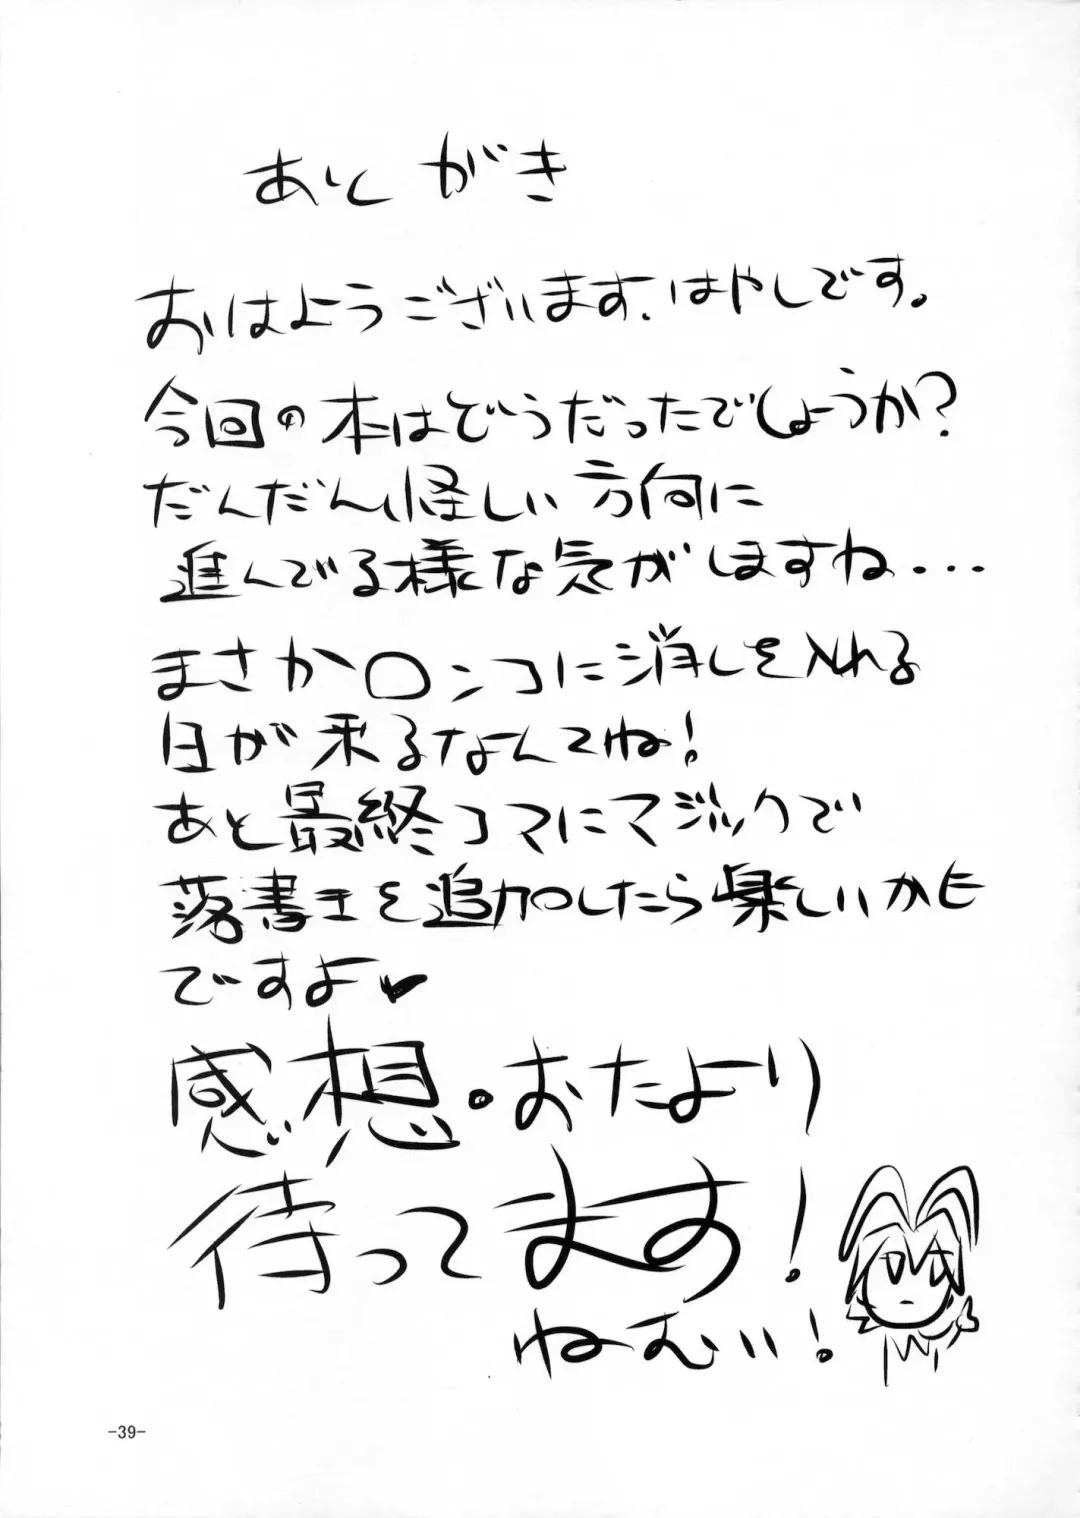 あとがき
おはようございます.はやしです。
今回の本はどうだったでしょうか?
だんだん怪しい方向に
進んでる様な気がしますね...
まさか口ンコに消しを入れる
日が来るなんてね!
あと最終コマにマジックで
落書きを追加したら楽しいかも
ですよ♥
感想。おたより
待ってます!
ねむい!
-39-